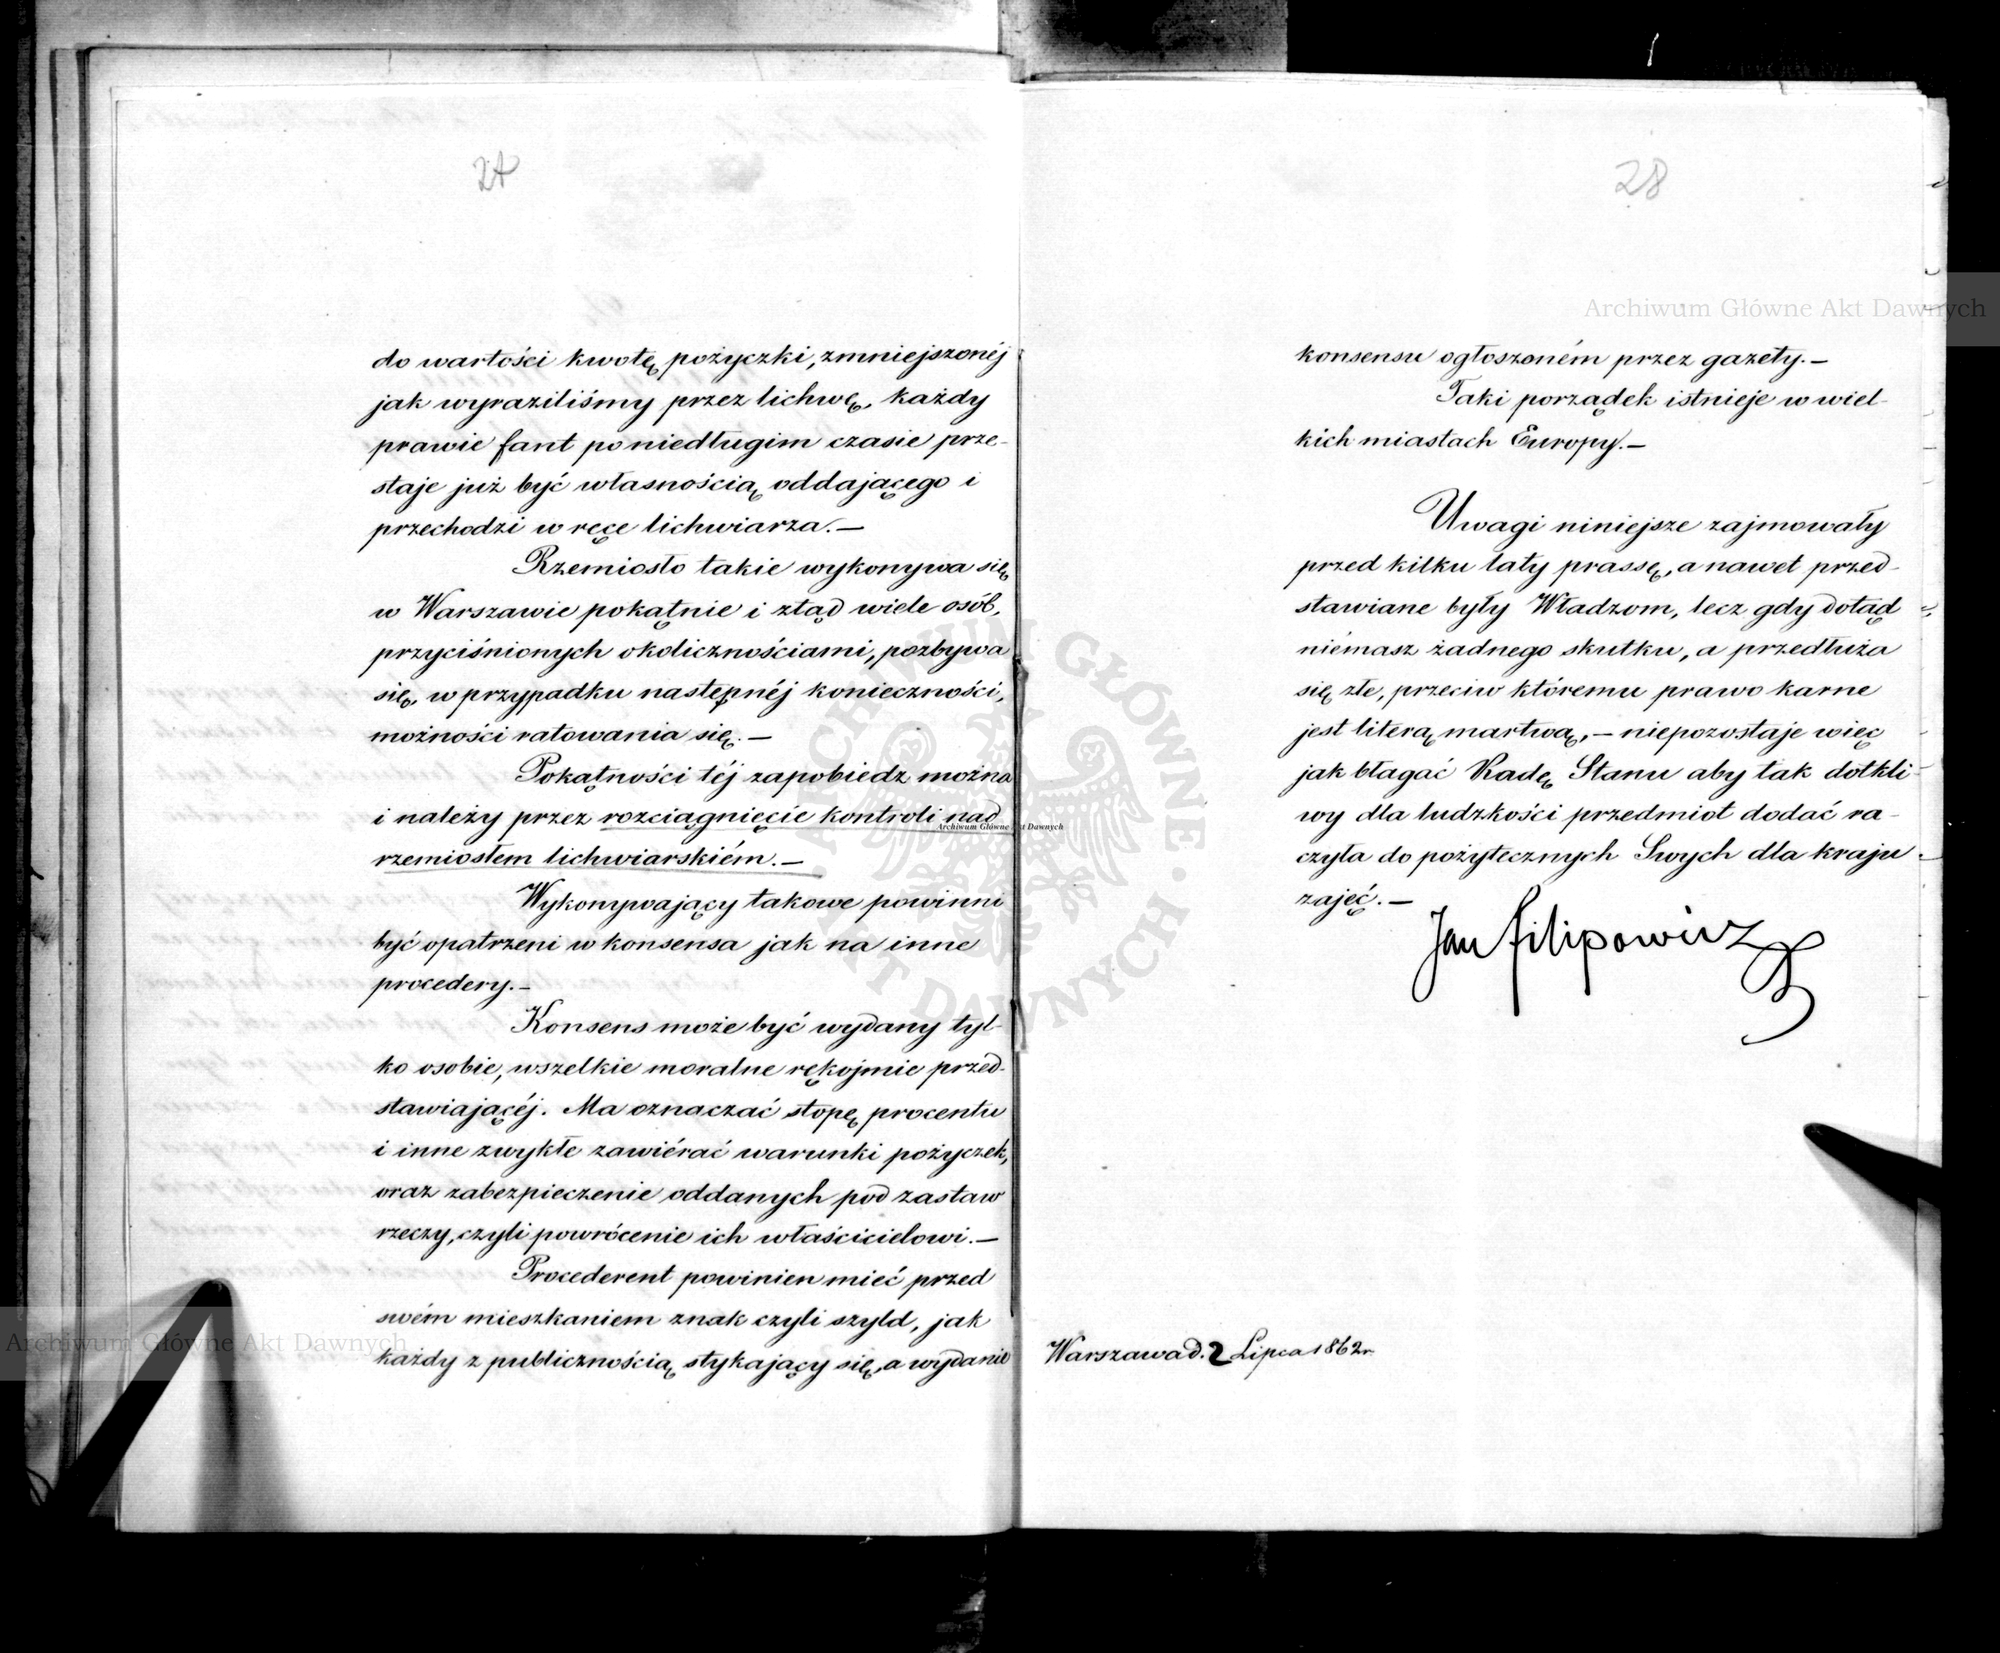 27
do wartości kwotę pożyczki, zmniejszonéj
jak wyraziliśmy przez lichwę, każdy
prawie fant po niedługim czasie prze-
staje już być własnością oddającego i
przechodzi w ręce lichwiarza.—
Rzemiosło takie wykonywa się
w Warszawie pokątnie i ztąd wiele osób,
przyciśnionych okolicznościami, pozbywa
się, w przypadku następnéj konieczności,
możności ratowania się.—
Pokątności téj zapobiedz można
i należy przez rozciągnięcie kontroli nad
rzemiosłem lichwiarskiém.—
Wykonywający takowe powinni
być opatrzeni w konsensa jak na inne
procedery.—
Konsens może być wydany tyl-
ko osobie, wszelkie moralne rękojmie przed-
stawiającéj. Ma oznaczać stopę procentu
i inne zwykłe zawiérać warunki pożyczek,
oraz zabezpieczenie oddanych pod zastaw
rzeczy, czyli powrócenie ich właścicielowi.—
Procederent powinien mieć przed
swém mieszkaniem znak czyli szyld, jak
każdy z publicznością stykający się, a wydanie
28
konsensu ogłoszoném przez gazety.—
Taki porządek istnieje w wiel-
kich miastach Europy.—
Uwagi niniejsze zajmowały
przed kilku laty prassę, a nawet przed-
stawiane były Władzom, lecz gdy dotąd
niémasz żadnego skutku, a przedłuża
się złe, przeciw któremu prawo karne
jest literą martwą,— niepozostaje więc
jak błagać Radę Stanu aby tak dotkli-
wy dla ludzkości przedmiot dodać ra-
czyła do pożytecznych Swych dla kraju
zajęć.—
Jan Filipowicz
Warszawa d. 2 Lipca 1862 r.
Archiwum Główne Akt Dawnych
Archiwum Główne Akt Dawnych
Archiwum Główne Akt Dawnych
ARCHIWUM GŁÓWNE AKT DAWNYCH